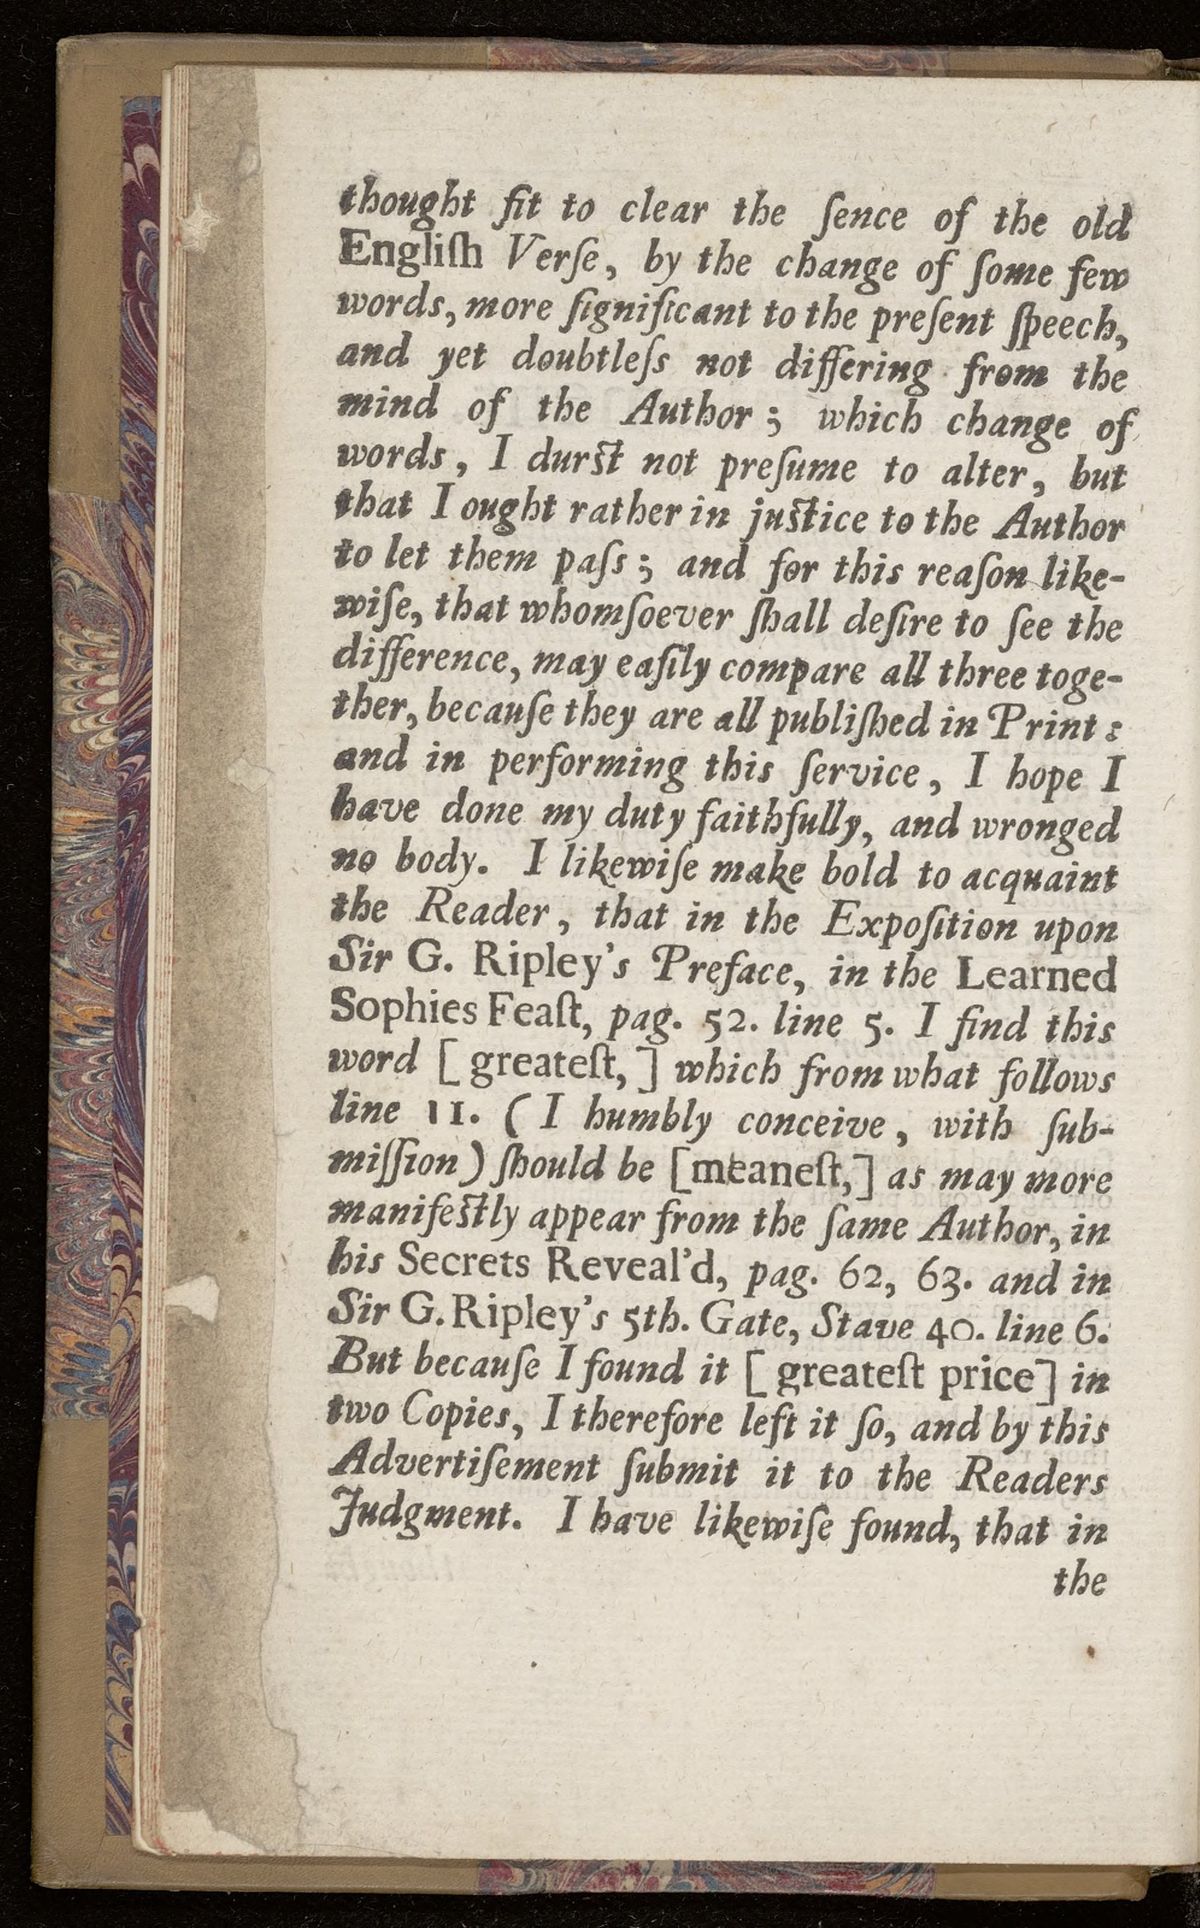 thought fit to clear the ſence of the old
Engliſh Verſe, by the change of ſome few
words, more ſignificant to the preſent ſpeech,
and yet doubtleſs not differing from the
mind of the Author ; which change of
words , I durſt not preſume to alter, but
that I ought rather in juſtice to the Author
to let them paſs ; and for this reaſon like-
wiſe, that whomſoever ſhall deſire to ſee the
difference, may eaſily compare all three toge-
ther, becauſe they are all publiſhed in Print :
and in performing this ſervice , I hope I
have done my duty faithfully, and wronged
no body. I likewiſe make bold to acquaint
the Reader , that in the Expoſition upon
Sir G. Ripley's Preface, in the Learned
Sophies Feaſt, pag. 52. line 5. I find this
word [ greateſt, ] which from what follows
line 11. ( I humbly conceive , with ſub-
miſſion ) ſhould be [meaneſt,] as may more
manifeſtly appear from the ſame Author, in
his Secrets Reveal'd, pag. 62, 63. and in
Sir G. Ripley's 5th. Gate, Stave 40. line 6.
But becauſe I found it [ greateſt price] in
two Copies, I therefore left it ſo, and by this
Advertiſement ſubmit it to the Readers
Judgment. I have likewiſe found, that in
the